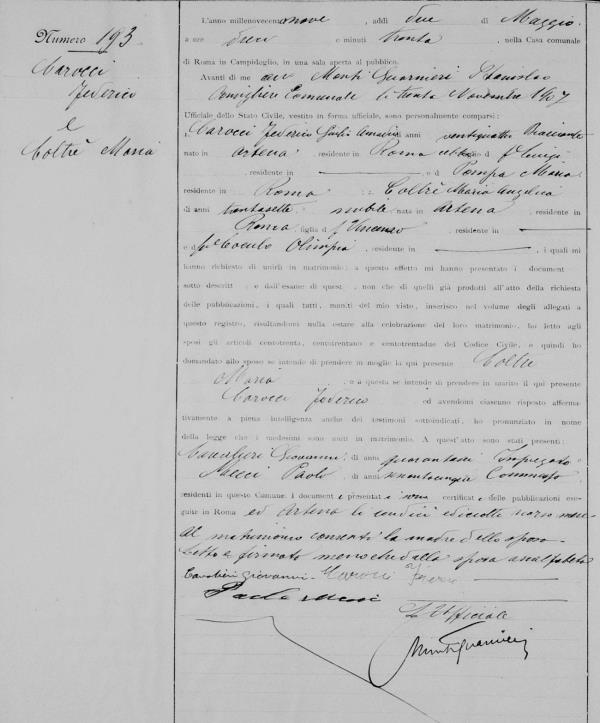 L'anno millenovecento nove, addì due di Maggio
Numero 193
a ore dieci e minuti trenta, nella Casa comunale
di Roma in Campidoglio, in una sala aperta al pubblico.
Carocci
Avanti di me Monti Guarnieri Stanislao
Federico
Consigliere Comunale Novembre 1907
e
Ufficiale dello Stato Civile, vestito in forma ufficiale, sono personalmente comparsi:
Coltrè Maria
1. Carocci Federico anni ventiquattro Bracciante
nato in Artena, residente in Roma figlio di fu Luigi
, residente in e di Pompa Maria
residente in Roma Coltrè Maria Angelica
di anni trentasette nubile nata in Artena, residente in
Roma figlia di fu Vincenzo, residente in
e di fu Coculo Olimpia, residente in , i quali mi
hanno richiesto di unirli in matrimonio; a questo effetto mi hanno presentato i document
sotto descritt ; e dall'esame di quest , non che di quelli già prodotti all'atto della richiesta
delle pubblicazioni, i quali tutti, muniti del mio visto, inserisco nel volume degli allegati a
questo registro, risultandomi nulla ostare alla celebrazione del loro matrimonio, ho letto agli
sposi gli articoli centotrenta, centotrentuno e centotrentadue del Codice Civile, e quindi ho
domandato allo sposo se intende di prendere in moglie la qui presente Coltrè
Maria e a questa se intende di prendere in marito il qui presente
Carocci Federico ed avendomi ciascuno risposto afferma-
tivamente a piena intelligenza anche dei testimoni sottoindicati, ho pronunziato in nome
della legge che i medesimi sono uniti in matrimonio. A quest'atto sono stati presenti:
Cavalieri Giovanni, di anni Impiegato
Paolo, di anni
residenti in questo Comune. I document presentat certificat delle pubblicazioni ese-
guite in Roma ed Artena li undici e diciotto
Al matrimonio consentì la madre dello sposo
Letto e firmato meno che dalla sposa analfabeta
Cavalieri Giovanni - Carocci
Paolo
L'Ufficiale
Monti Guarnieri